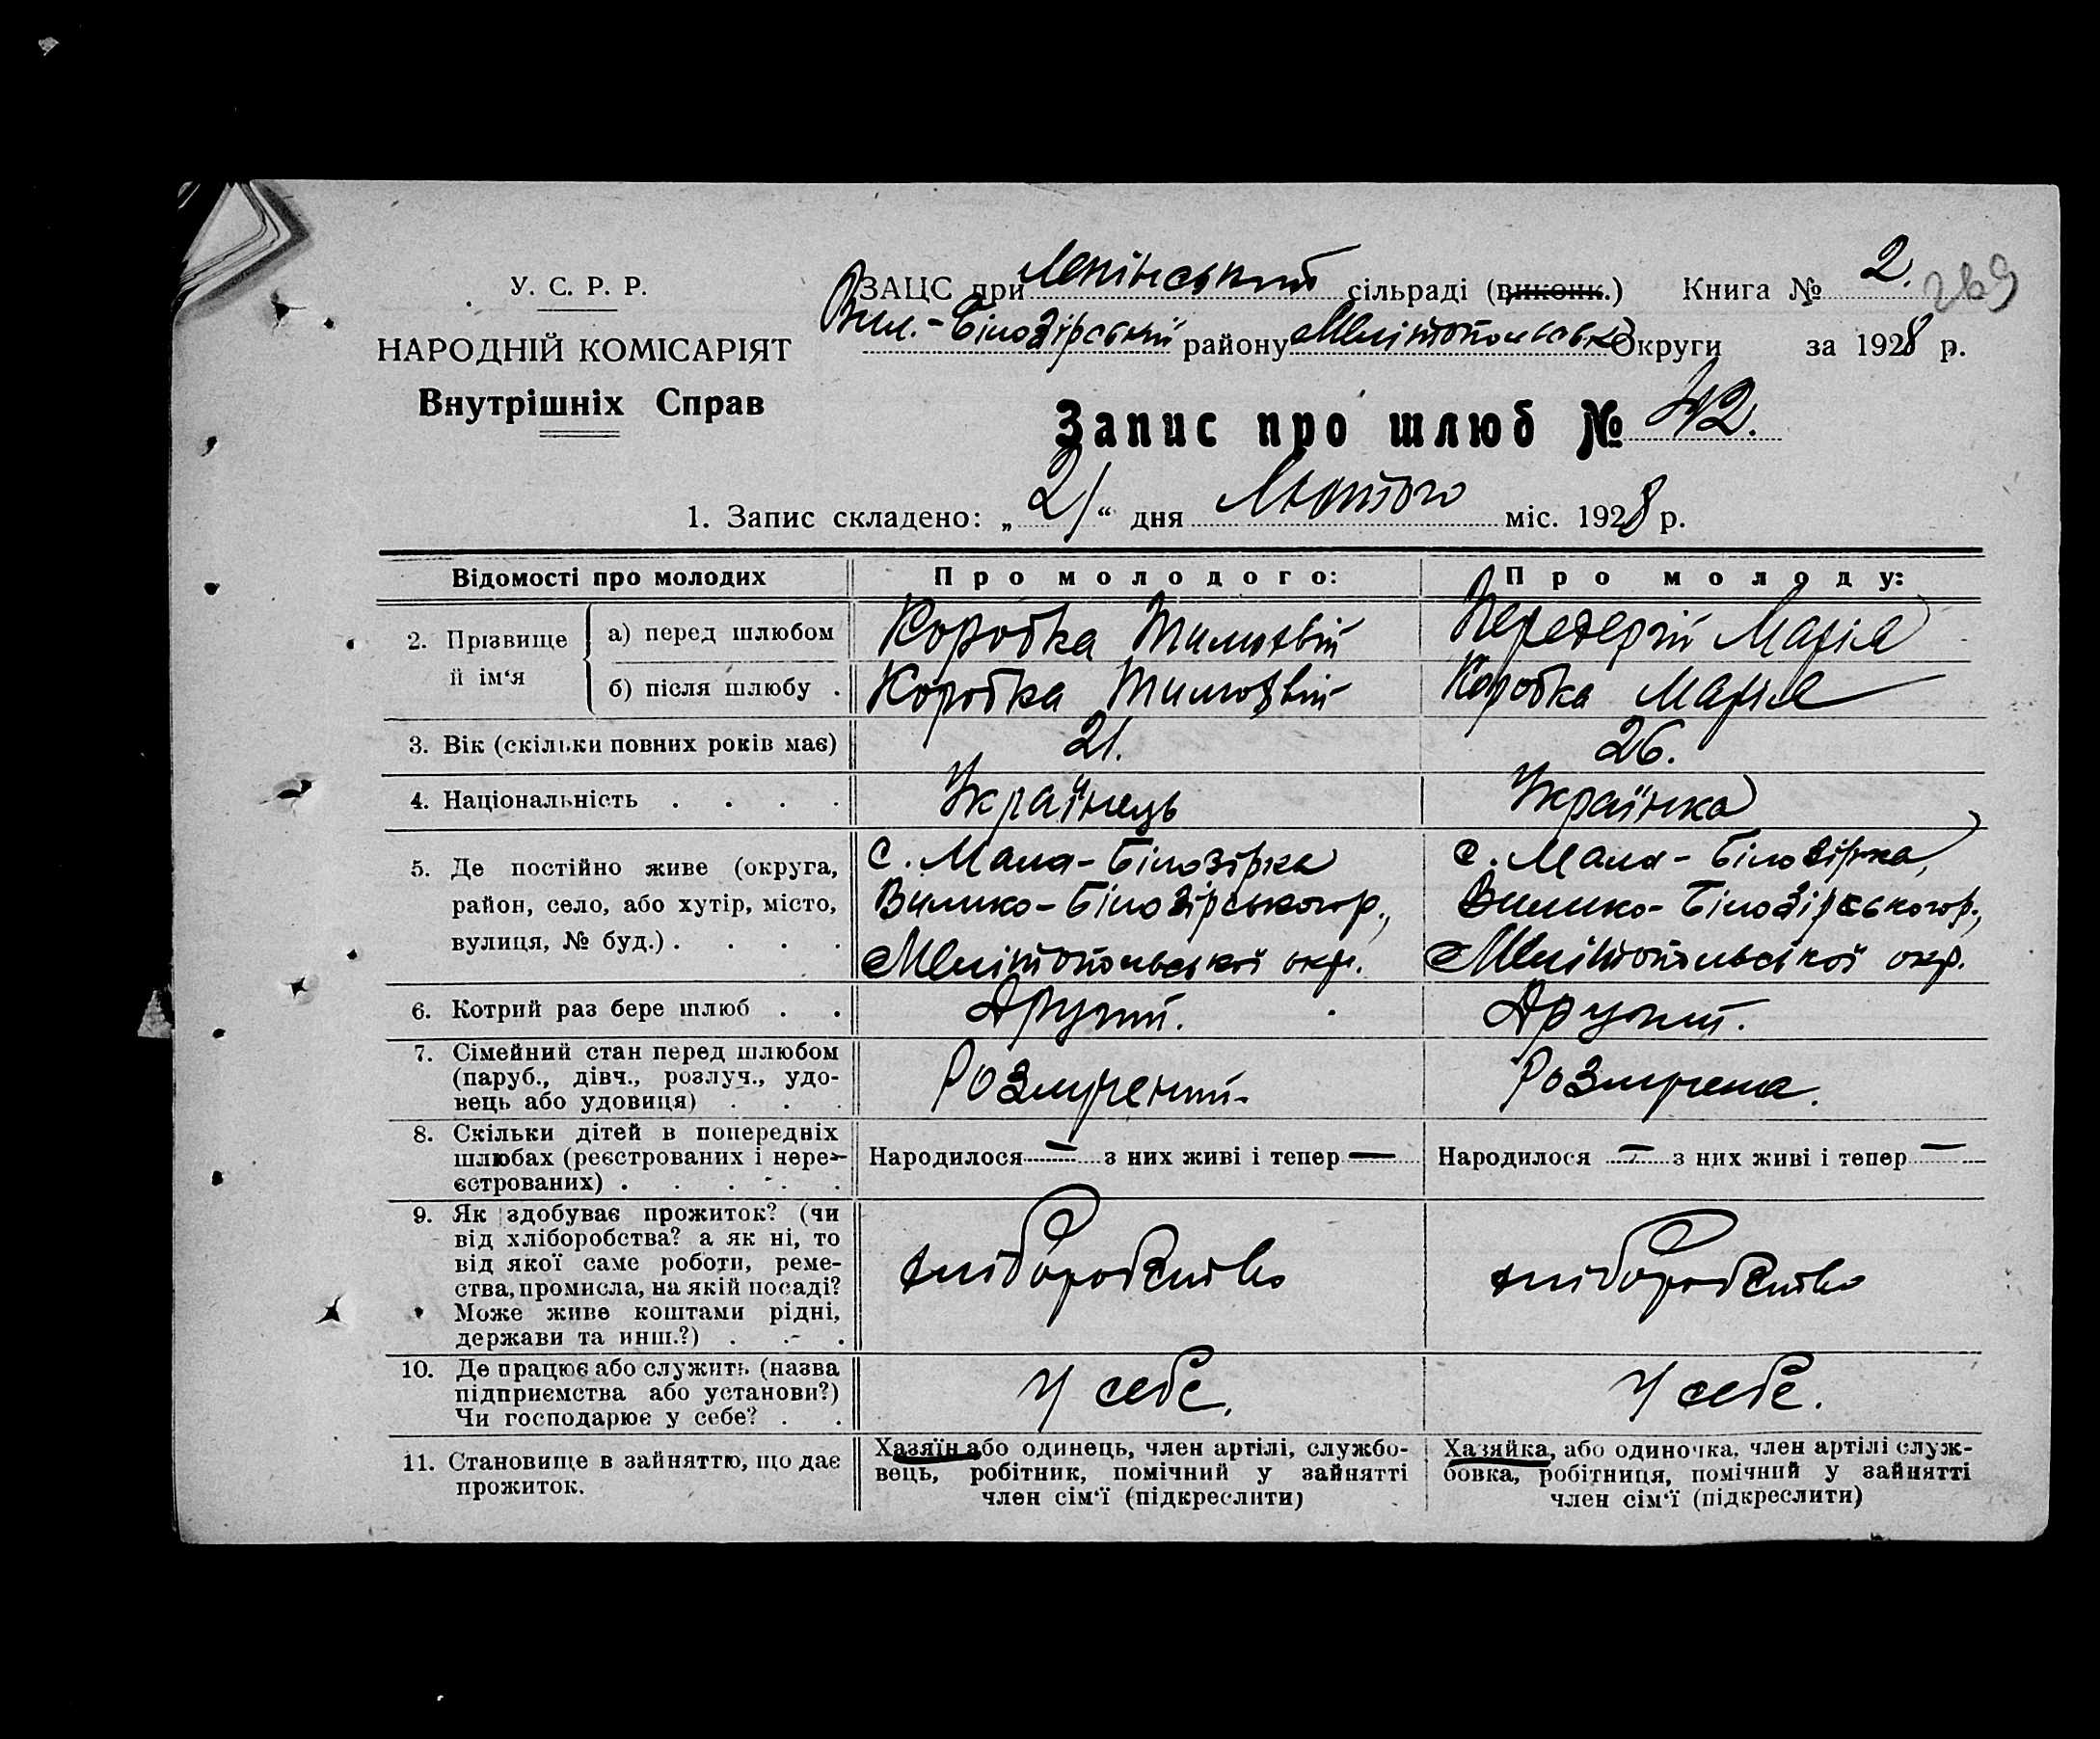 У. С. Р. Р.
НАРОДНІЙ КОМІСАРІЯТ
Внутрішніх Справ
ЗАЦС при Ленінський сільраді (виконк.) Книга № 2. 269
Вел.-Білозірський району Мелітопольськ Округи за 1928 р.
Запис про шлюб № 42.
1. Запис складено: „21“ дня Лютого міс. 1928 р.
Відомості про молодих Про молодого: Про молоду:
2. Прізвище й ім‘я
а) перед шлюбом Коробка Тимофвій Передерій Марія
б) після шлюбу . Коробка Тимофвій Коробка Марія
3. Вік (скільки повних років має) 21. 26.
4. Національність . . . . Українець Українка
5. Де постійно живе (округа, район, село, або хутір, місто, вулиця, № буд.) . . . .
с. Мала-Білозірка
Велико-Білозірського р.,
Мелітопольської окр.
с. Мала-Білозірка,
Велико-Білозірського р.,
Мелітопольської окр.
6. Котрий раз бере шлюб . . Другий. Другий.
7. Сімейний стан перед шлюбом
(паруб., дівч., розлуч., удо-
вець або удовиця) . . .
Розлучений. Розлучена.
8. Скільки дітей в попередніх
шлюбах (реєстрованих і нере-
єстрованих) . . . . .
Народилося — з них живі і тепер — Народилося — з них живі і тепер —
9. Як здобуває прожиток? (чи
від хліборобства? а як ні, то
від якої саме роботи, реме-
ства, промисла, на якій посаді?
Може живе коштами рідні,
держави та инш.?) . . .
хліборобство хліборобство
10. Де працює або служить (назва
підприємства або установи?)
Чи господарює у себе? . .
У себе. У себе.
11. Становище в зайняттю, що дає
прожиток.
Хазяїн або одинець, член артілі, службо-
вець, робітник, помічний у зайнятті
член сім‘ї (підкреслити)
Хазяйка, або одиночка, член артілі служ-
бовка, робітниця, помічний у зайнятті
член сім‘ї (підкреслити)